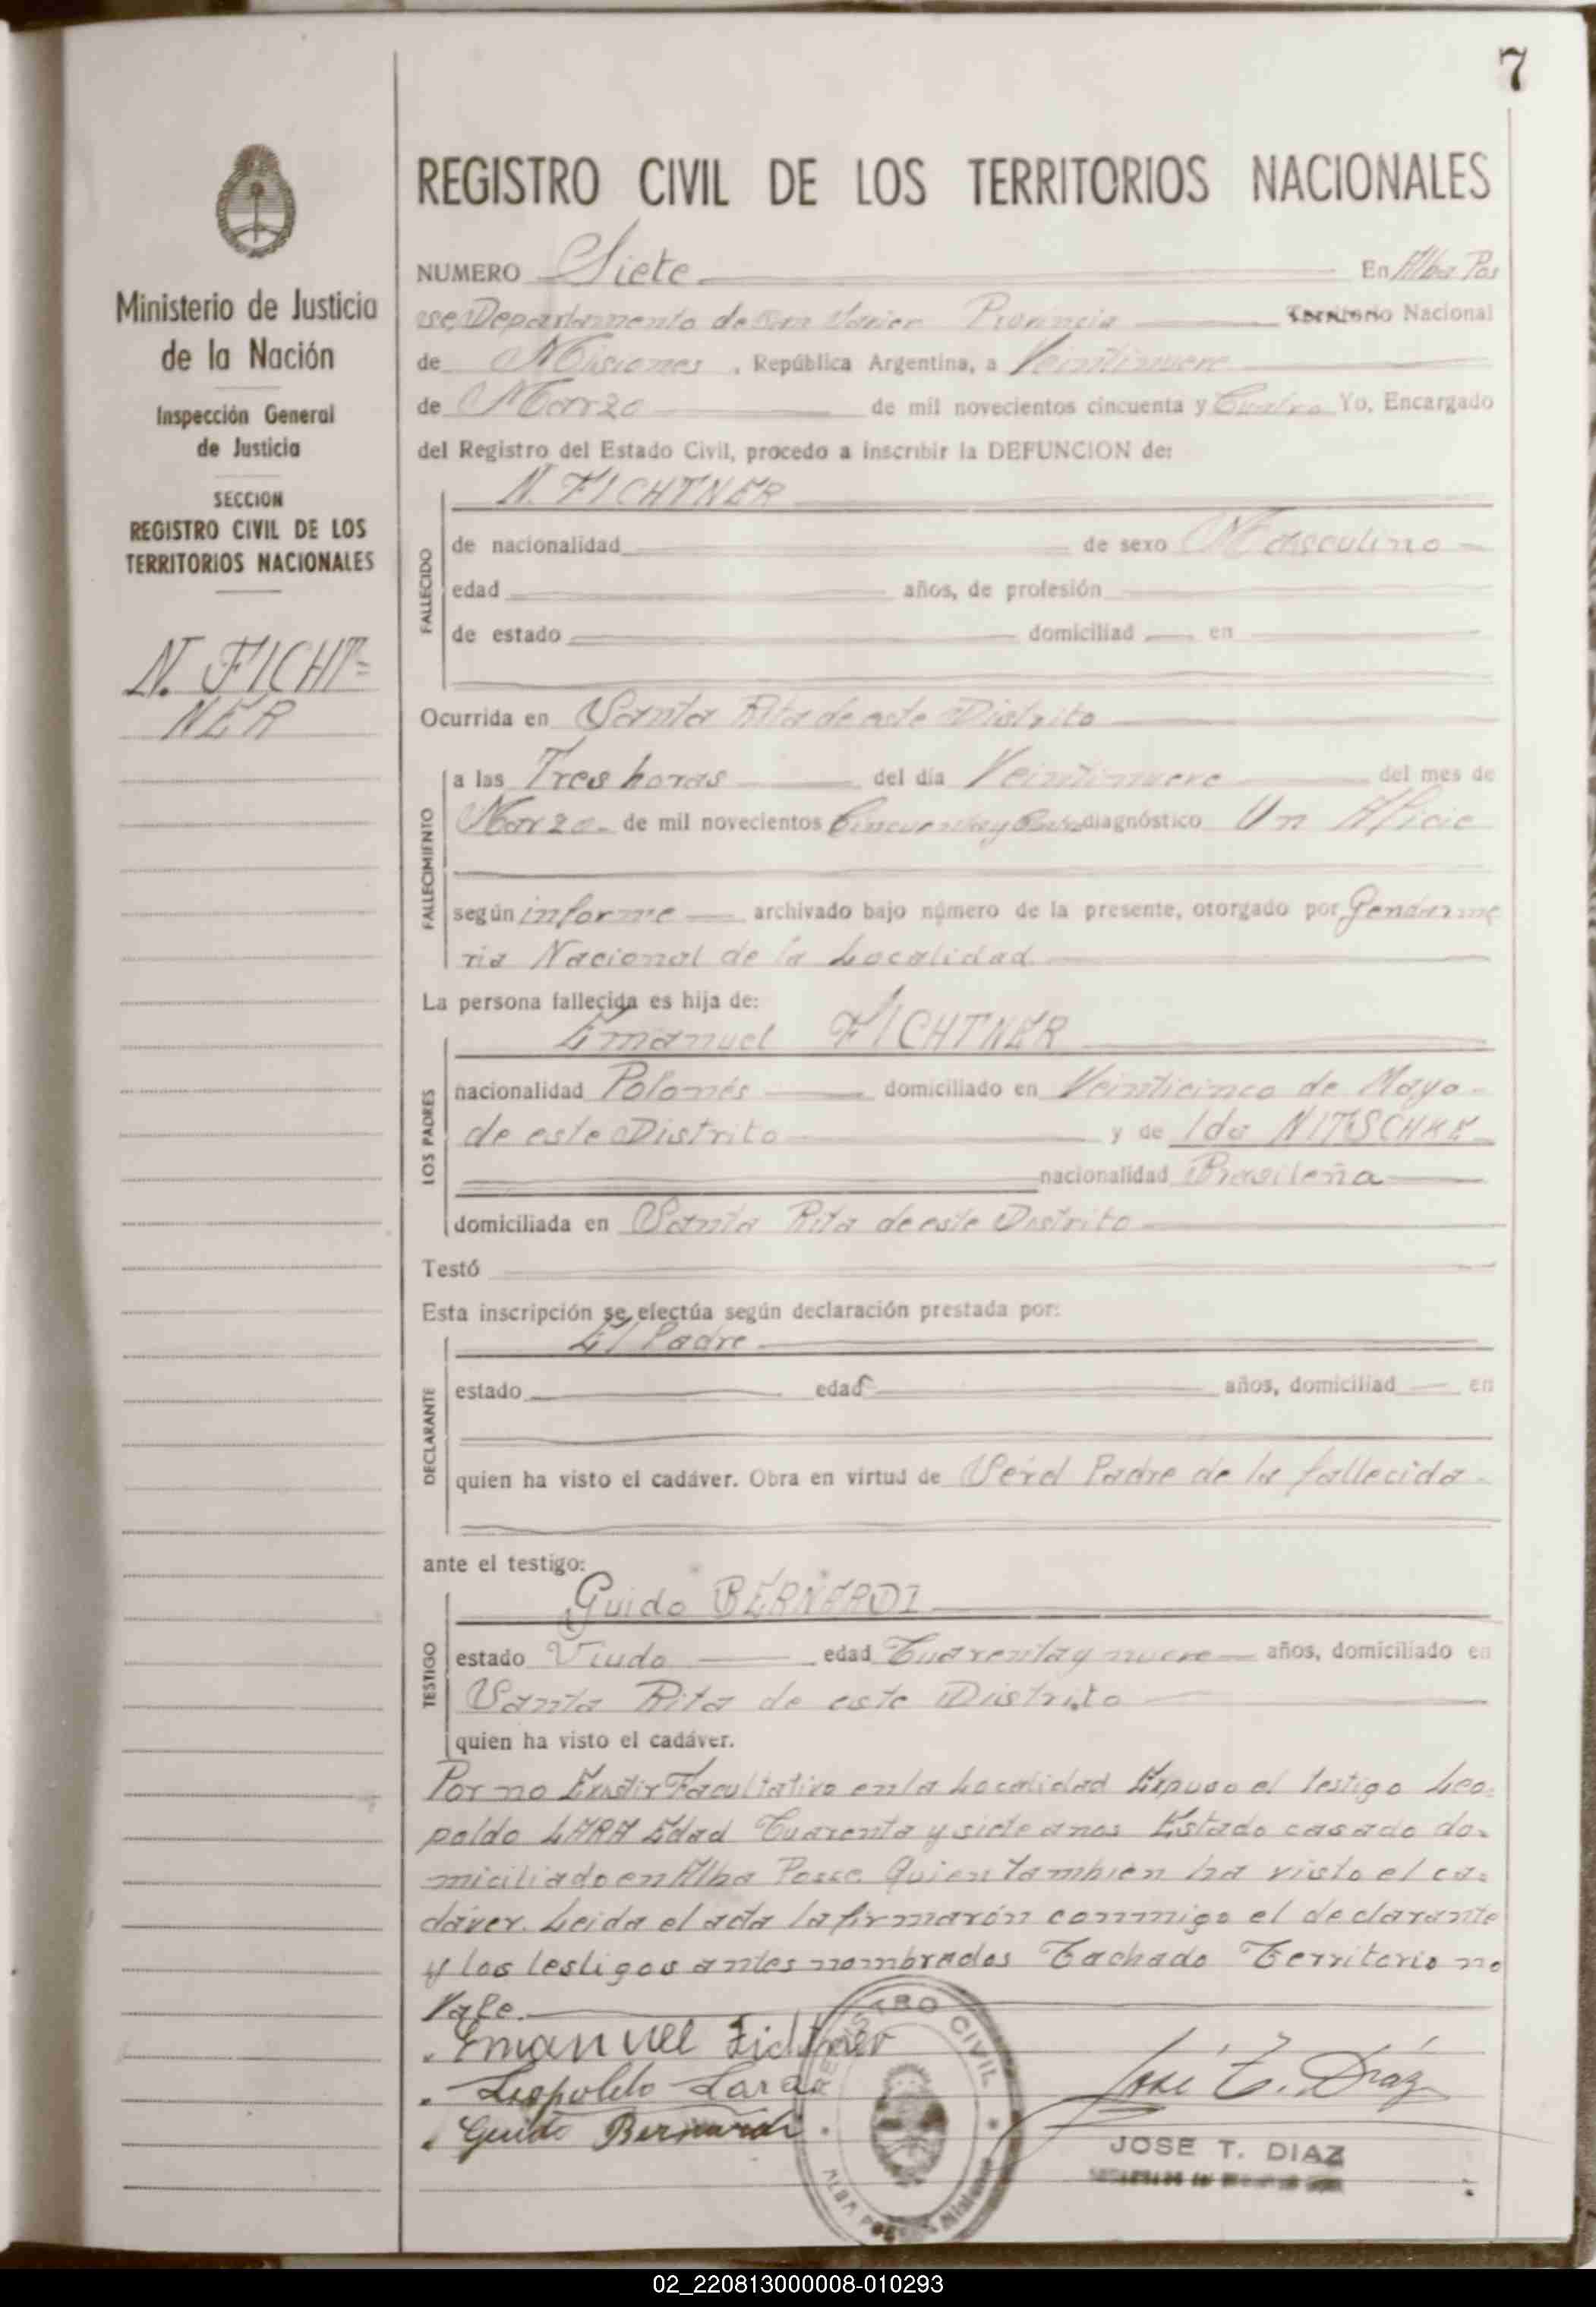 7
Ministerio de Justicia
de la Nación
Inspección General
de Justicia
SECCION
REGISTRO CIVIL DE LOS
TERRITORIOS NACIONALES
N. FICHT=
NER
REGISTRO CIVIL DE LOS TERRITORIOS NACIONALES
NUMERO Siete En Alba Pos
se, Departamento de San Javier Provincia Territorio Nacional
de Misiones, República Argentina, a Veintinueve
de Marzo de mil novecientos cincuenta y Cuatro Yo, Encargado
del Registro del Estado Civil, procedo a inscribir la DEFUNCION de:
N. FICHTNER
FALLECIDO
de nacionalidad de sexo Masculino
edad años, de profesión
de estado domiciliad en
Ocurrida en Santa Rita de este Distrito
FALLECIMIENTO
a las Tres horas del día Veintinueve del mes de
Marzo de mil novecientos Cincuenta y diagnóstico Un
según informe archivado bajo número de la presente, otorgado por Gendarme
ria Nacional de la Localidad
La persona fallecida es hija de:
Emanuel FICHTNER
LOS PADRES
nacionalidad Polonés domiciliado en Veinticinco de Mayo
de este Distrito y de Ida NITSCHKE
nacionalidad Brasileña
domiciliada en Santa Rita de este Distrito
Testó
Esta inscripción se efectúa según declaración prestada por:
El Padre
DECLARANTE
estado edad años, domiciliad en
quien ha visto el cadáver. Obra en virtud de Padre de la fallecida
ante el testigo:
Guido BERNARDI
TESTIGO
estado Viudo edad Cuarenta y nueve años, domiciliado en
Santa Rita de este Distrito
quien ha visto el cadáver.
Por no Existir Facultativo en la Localidad Expuso el testigo Leo=
poldo LARA Edad Cuarenta y siete anos Estado casado do=
miciliado en Alba Posse Quien tambien ha visto el ca=
dáver. Leida el acta la firmarón conmigo el declarante
y los testigos antes nombrados Tachado Territorio no
Vale.
Emanuel Fichtner
Leopoldo Lara
Guido Bernardi
REGISTRO CIVIL
ALBA POSSE Misiones
José T. Díaz
JOSE T. DIAZ
02_220813000008-010293